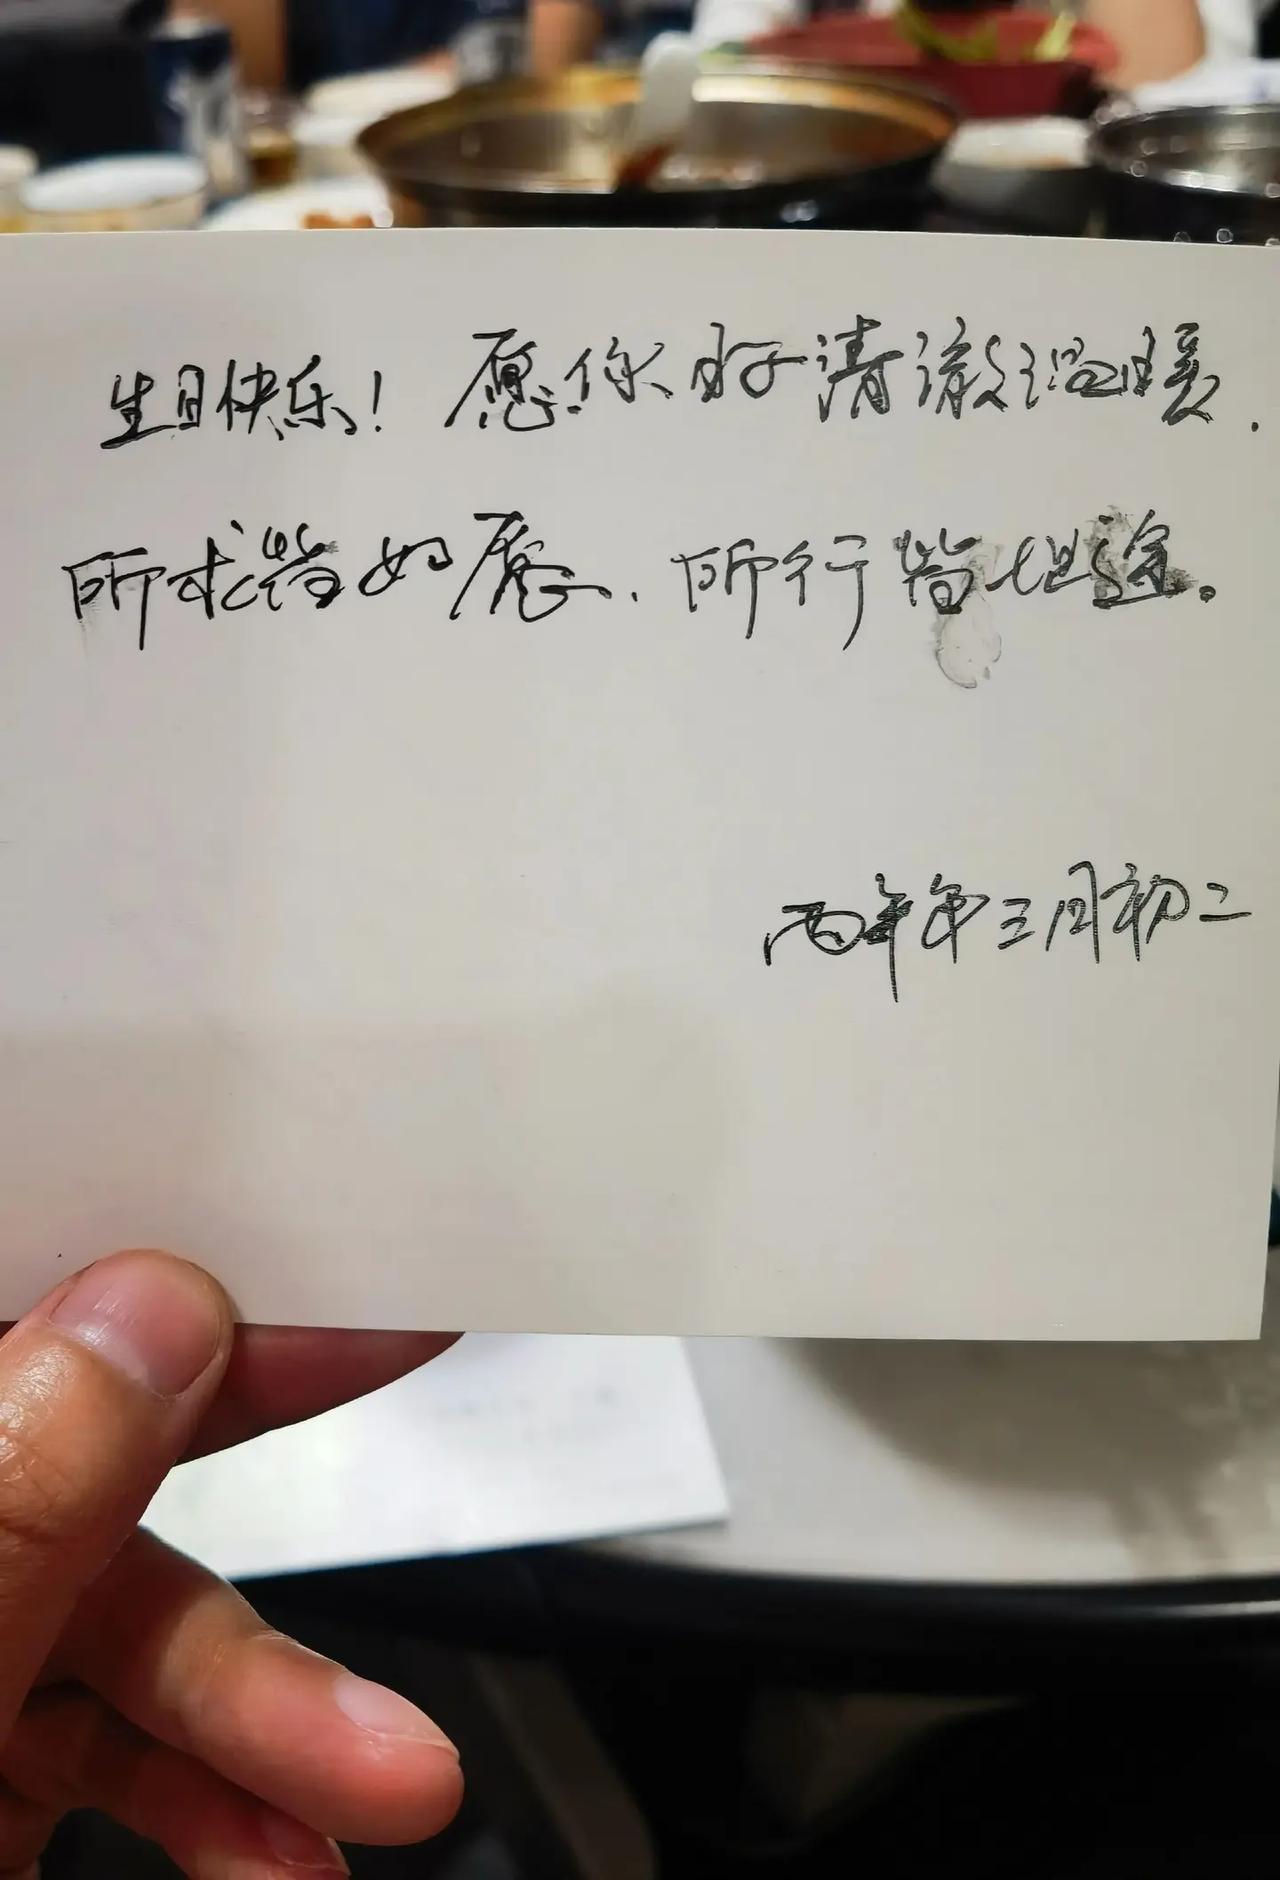 生日快乐！愿你 清澈温暖.
所求皆如愿.所行皆坦途。
丙午年三月初二